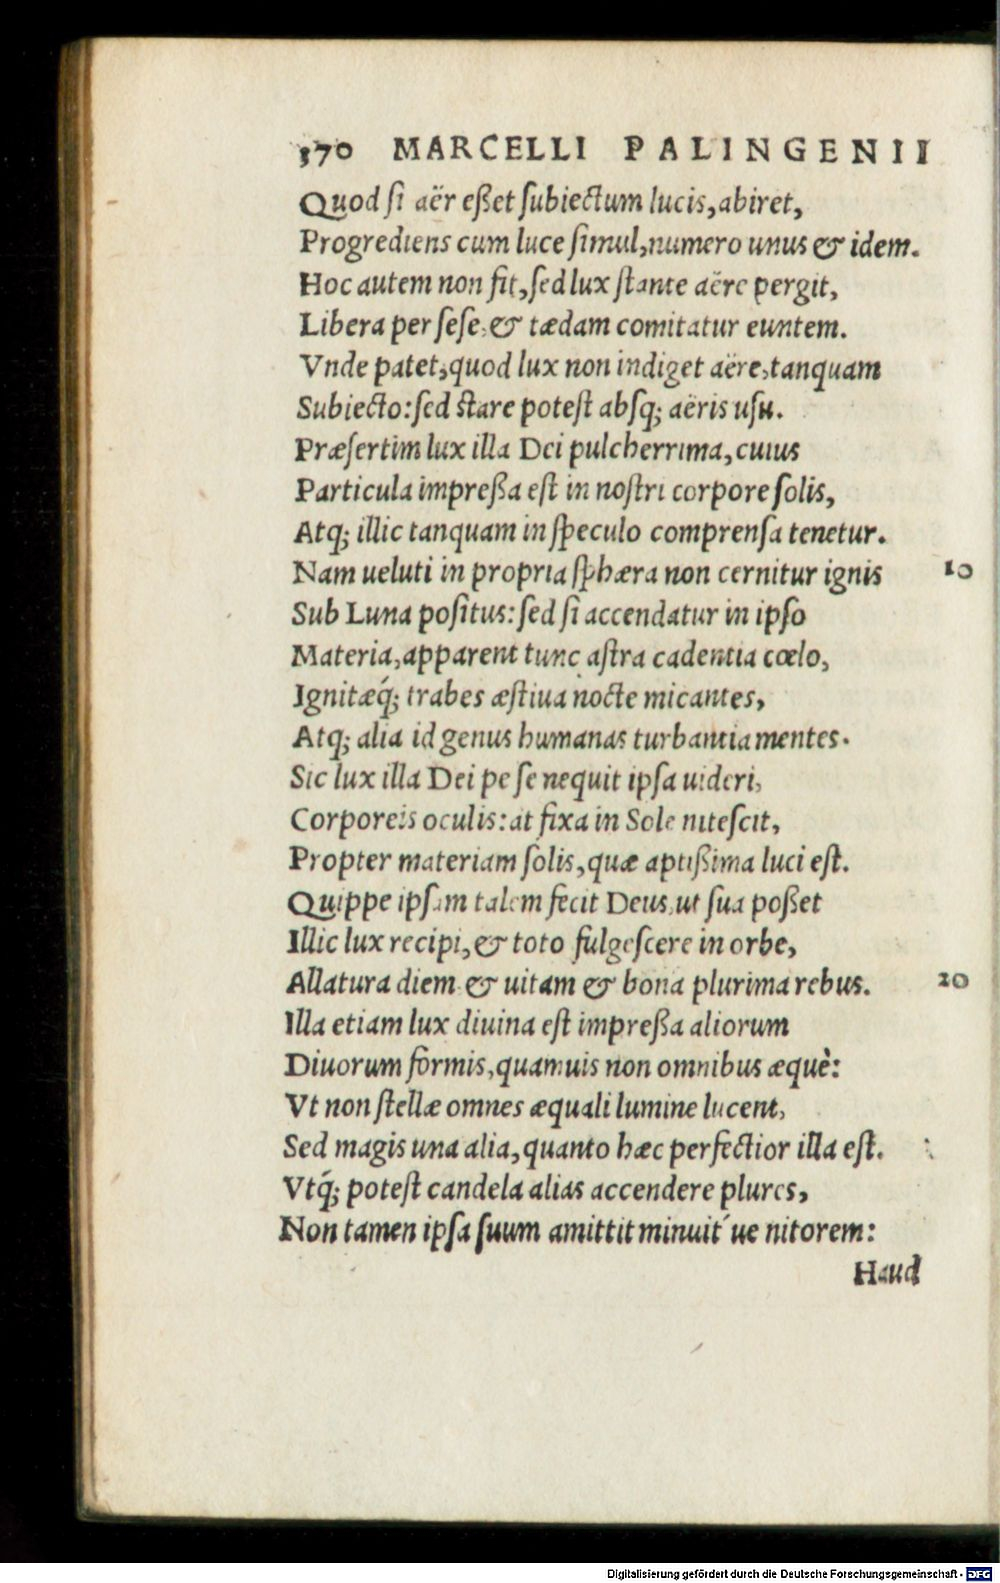 370 MARCELLI PALINGENII
Quod ſi aër eßet ſubiectum lucis, abiret,
Progrediens cum luce ſimul, numero unus & idem.
Hoc autem non fit, ſed lux ſtante aëre pergit,
Libera per ſeſe, & tædam comitatur euntem.
Vnde patet, quod lux non indiget aëre, tanquam
Subiecto: ſed ſtare poteſt abſq; aëris uſu.
Præſertim lux illa Dei pulcherrima, cuius
Particula impreßa eſt in noſtri corpore ſolis,
Atq; illic tanquam in ſpeculo comprenſa tenetur.
Nam ueluti in propria ſphæra non cernitur ignis 10
Sub Luna poſitus: ſed ſi accendatur in ipſo
Materia, apparent tunc aſtra cadentia cœlo,
Ignitæq́; trabes æſtiua nocte micantes,
Atq; alia id genus humanas turbantia mentes.
Sic lux illa Dei pe ſe nequit ipſa uideri,
Corporeis oculis: at fixa in Sole niteſcit,
Propter materiam ſolis, quæ aptißima luci eſt.
Quippe ipſam talem fecit Deus, ut ſua poßet
Illic lux recipi, & toto fulgeſcere in orbe,
Allatura diem & uitam & bona plurima rebus. 20
Illa etiam lux diuina eſt impreßa aliorum
Diuorum formis, quamuis non omnibus æquè:
Vt non ſtellæ omnes æquali lumine lucent,
Sed magis una alia, quanto hæc perfectior illa eſt.
Vtq́; poteſt candela alias accendere plures,
Non tamen ipſa ſuum amittit minuit´ue nitorem:
Haud
Digitalisierung gefördert durch die Deutsche Forschungsgemeinschaft - DFG